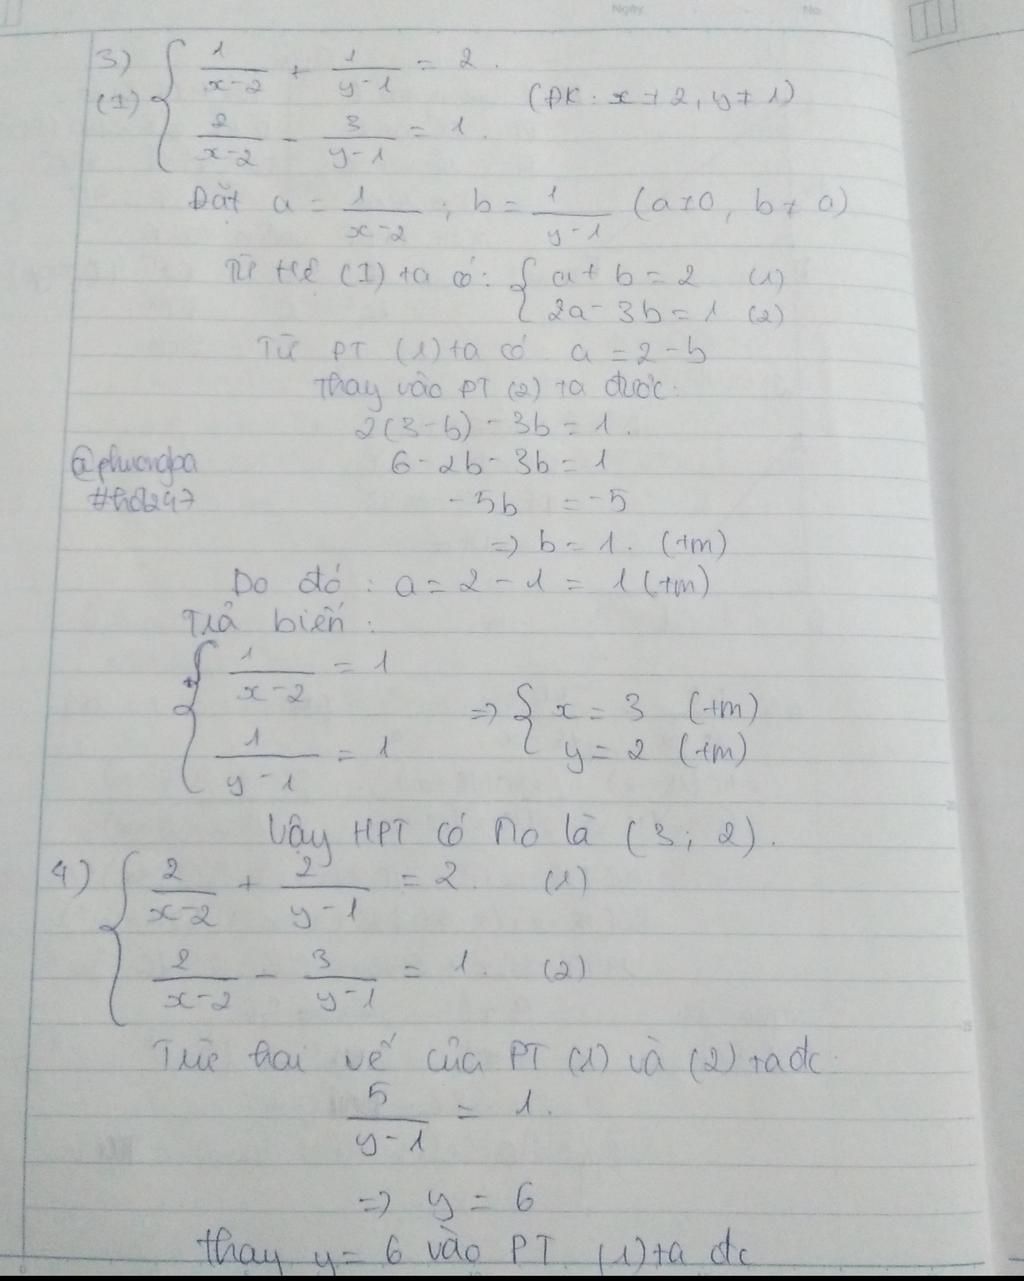 Ngày No
3) 1/(x-2) + 1/(y-1) = 2.
(I) (ĐK: x ≠ 2, y ≠ 1)
2/(x-2) - 3/(y-1) = 1.
Đặt a = 1/(x-2) ; b = 1/(y-1) (a≠0, b≠0)
Từ Hệ (I) ta có: { a + b = 2 (1)
2a - 3b = 1 (2)
Từ PT (1) ta có a = 2 - b
Thay vào PT (2) ta được:
2(3-b) - 3b = 1.
@phuongpa 6 - 2b - 3b = 1
#hđ247 -5b = -5
=> b = 1. (tm)
Do đó : a = 2 - 1 = 1 (tm)
Trả biến :
1/(x-2) = 1
=> { x = 3 (tm)
1/(y-1) = 1 y = 2 (tm)
Vậy HPT có no là (3; 2).
4) { 2/(x-2) + 2/(y-1) = 2. (1)
2/(x-2) - 3/(y-1) = 1. (2)
Trừ hai vế của PT (1) và (2) ta đc:
5/(y-1) = 1.
=> y = 6
thay y = 6 vào PT (1) ta đc